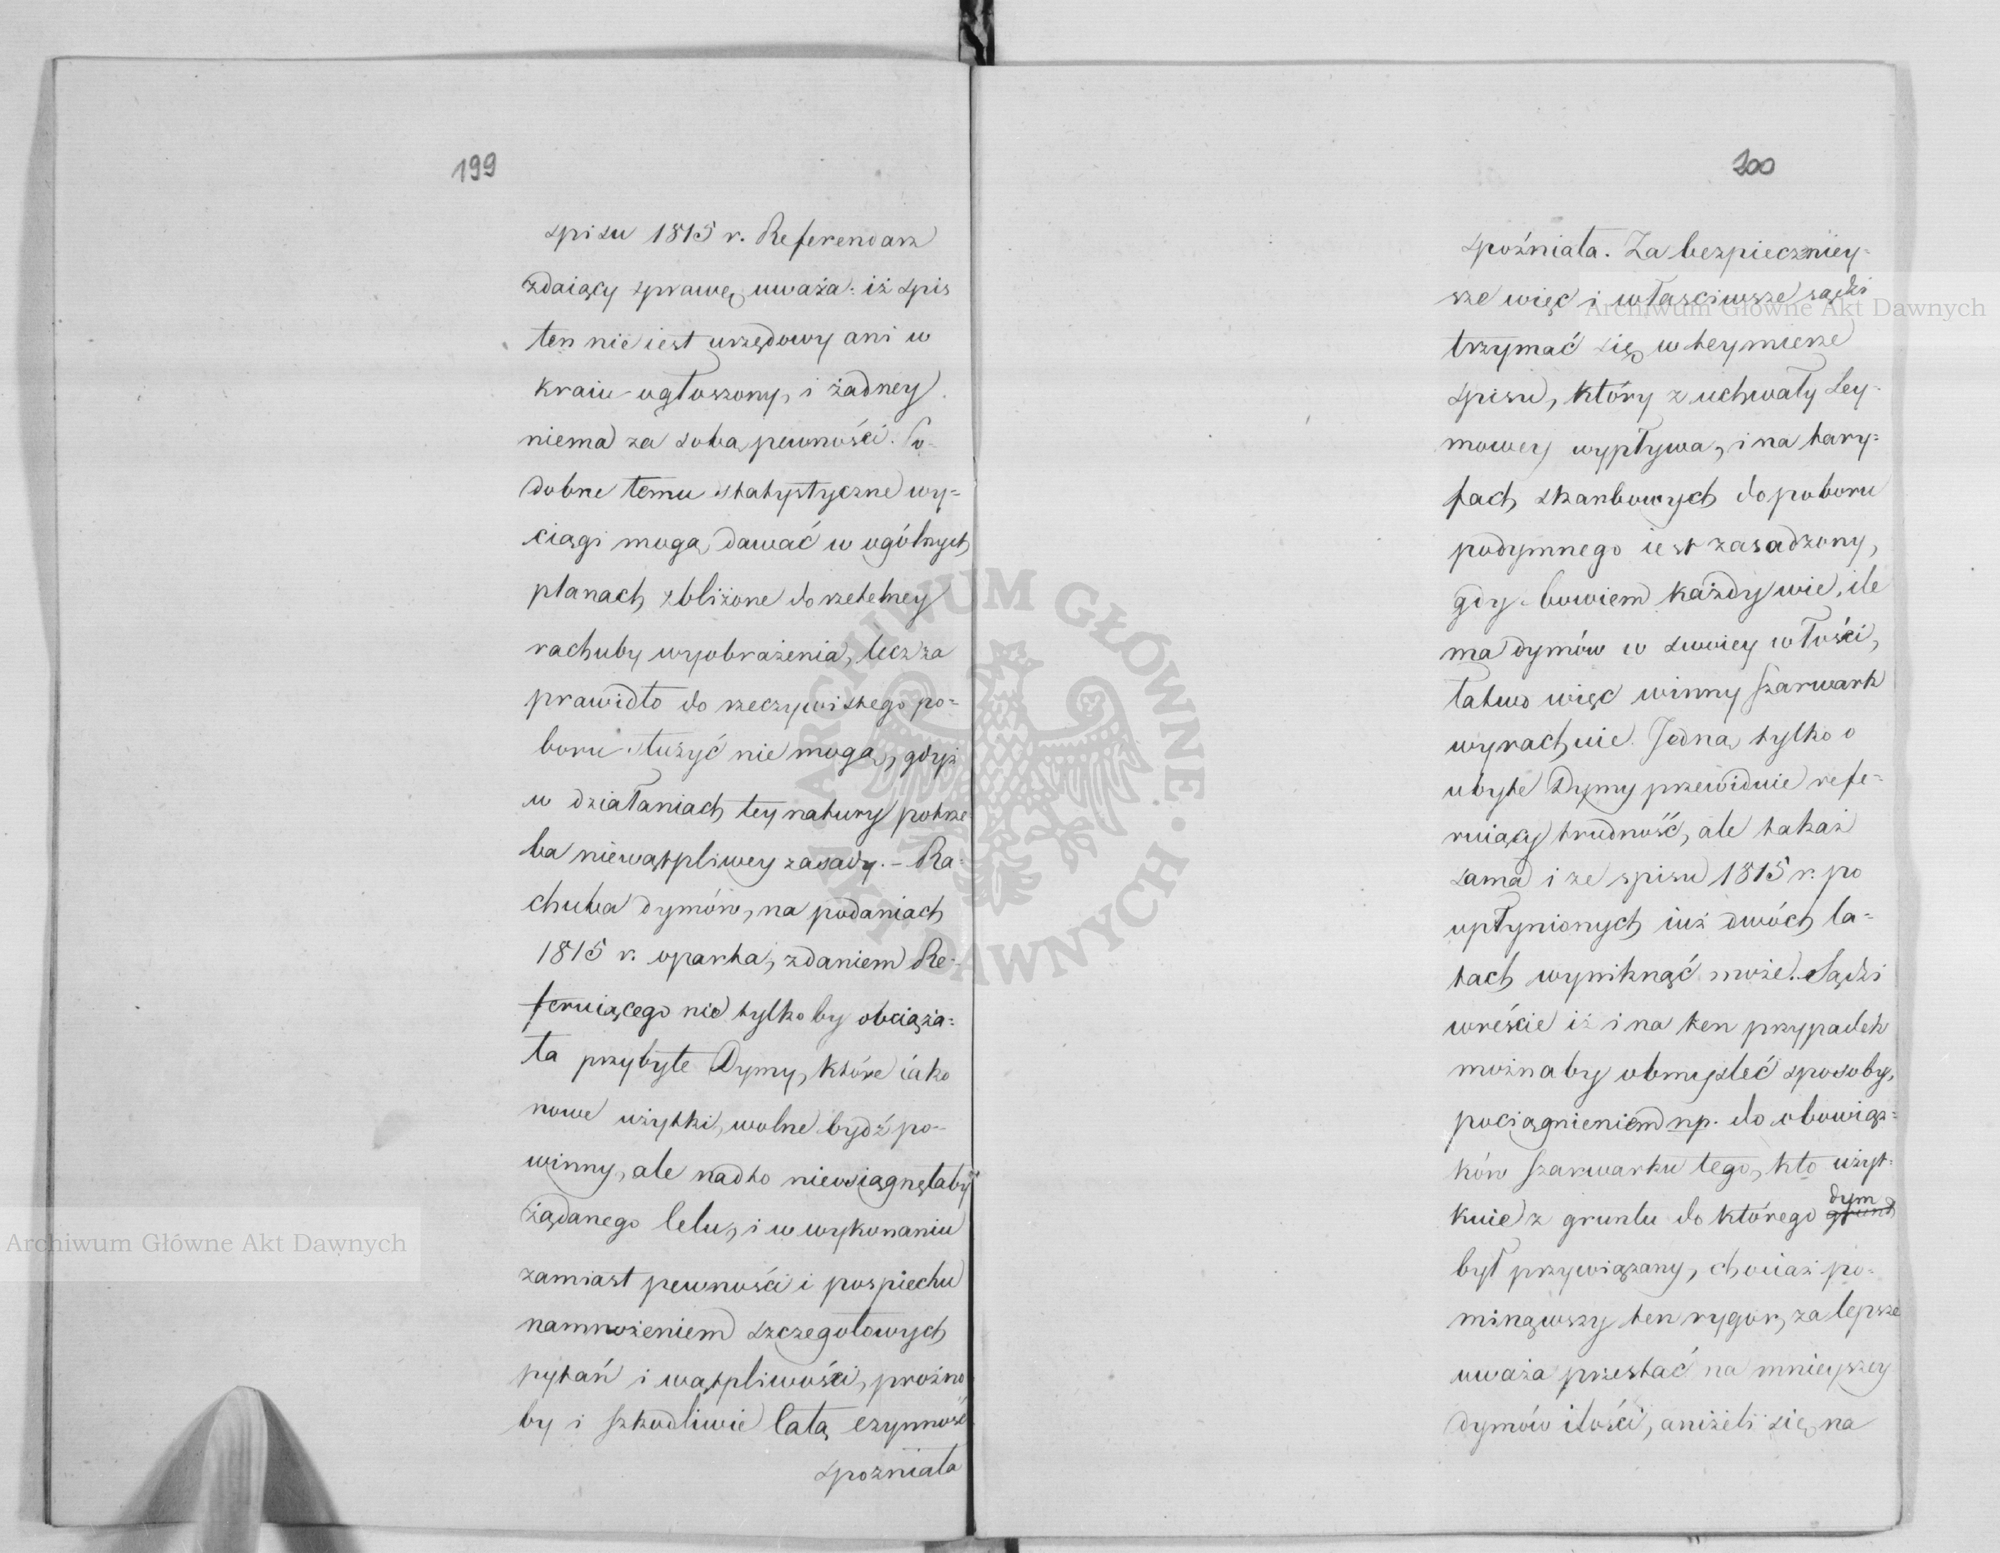 199
spisu 1815 r. Referendarz
zdaiący sprawę, uważa: iż spis
ten nie iest urzędowy ani w
kraiu ogłoszony, i żadney
niema za sobą pewności. Po-
dobne temu statystyczne wy=
ciągi mogą dawać w ogólnych
planach zbliżone do rzetelney
rachuby wyobrażenia, lecz za
prawidło do rzeczywistego po=
boru służyć nie mogą, gdyż
w działaniach tey natury potrze
ba niewątpliwey zasady. – Ra-
chuba dymów, na podaniach
1815 r. oparta, zdaniem Re-
feruiącego nie tylko by obciąża=
ła przybyłe Dymy, które iako
nowe użytki, wolne bydź po-
winny, ale nadto nieosiągnęłaby
żądanego celu, i w wykonaniu
zamiast pewności i pospiechu
namnożeniem szczegołowych
pytań i wątpliwości, prożno
by i szkodliwie całą czynność
spozniała
200
spoźniała. Za bezpieczniey-
sze więc i własciwsze sądzi
trzymać się w teymierze
spisu, który z uchwały Sey-
mowey wypływa, i na tary=
fach skarbowych do poboru
podymnego iest zasadzony,
gdy bowiem każdy wie, ile
ma dymów w swoiey włości,
łatwo więc winny szarwark
wyrachuie. Jedną tylko o
ubyłe Dymy przewiduie refe-
ruiący trudność, ale takaż
sama i ze spisu 1815 r. po
upłynionych iuż dwóch la-
tach wyniknąć może. Sądzi
wreście iż i na ten przypadek
możnaby obmysleć sposoby,
pociągnieniem np. do obowiąz=
ków szarwarku tego, kto użyt-
kuie z gruntu do którego dym grunt
był przywiązany, chociaż po-
minąwszy ten rygor, za lepsze
uważa przestać na mnieyszey
dymów ilości, aniżeli się na
Archiwum Główne Akt Dawnych
Archiwum Główne Akt Dawnych
ARCHIWUM GŁÓWNE AKT DAWNYCH